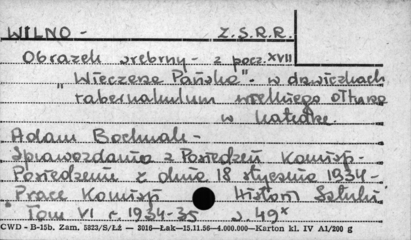 WILNO - Z.S.R.R.
Obrazek srebrny - z pocz. XVII
"Wieczerza Pańska" - w drzwiczkach
tabernakulum wielkiego ołtarza
w katedrze.
Adam Bochnak -
Sprawozdania z Posiedzeń Komisji -
Posiedzenie z dnia 18 stycznia 1934 -
Prace Komisji Historii Sztuki
Tom VI r. 1934-35 s. 49*
CWD - B-15b. Zam. 5823/S/Łż — 3016—Łak—15.11.56—4.000.000—Karton kl. IV A1/200 g